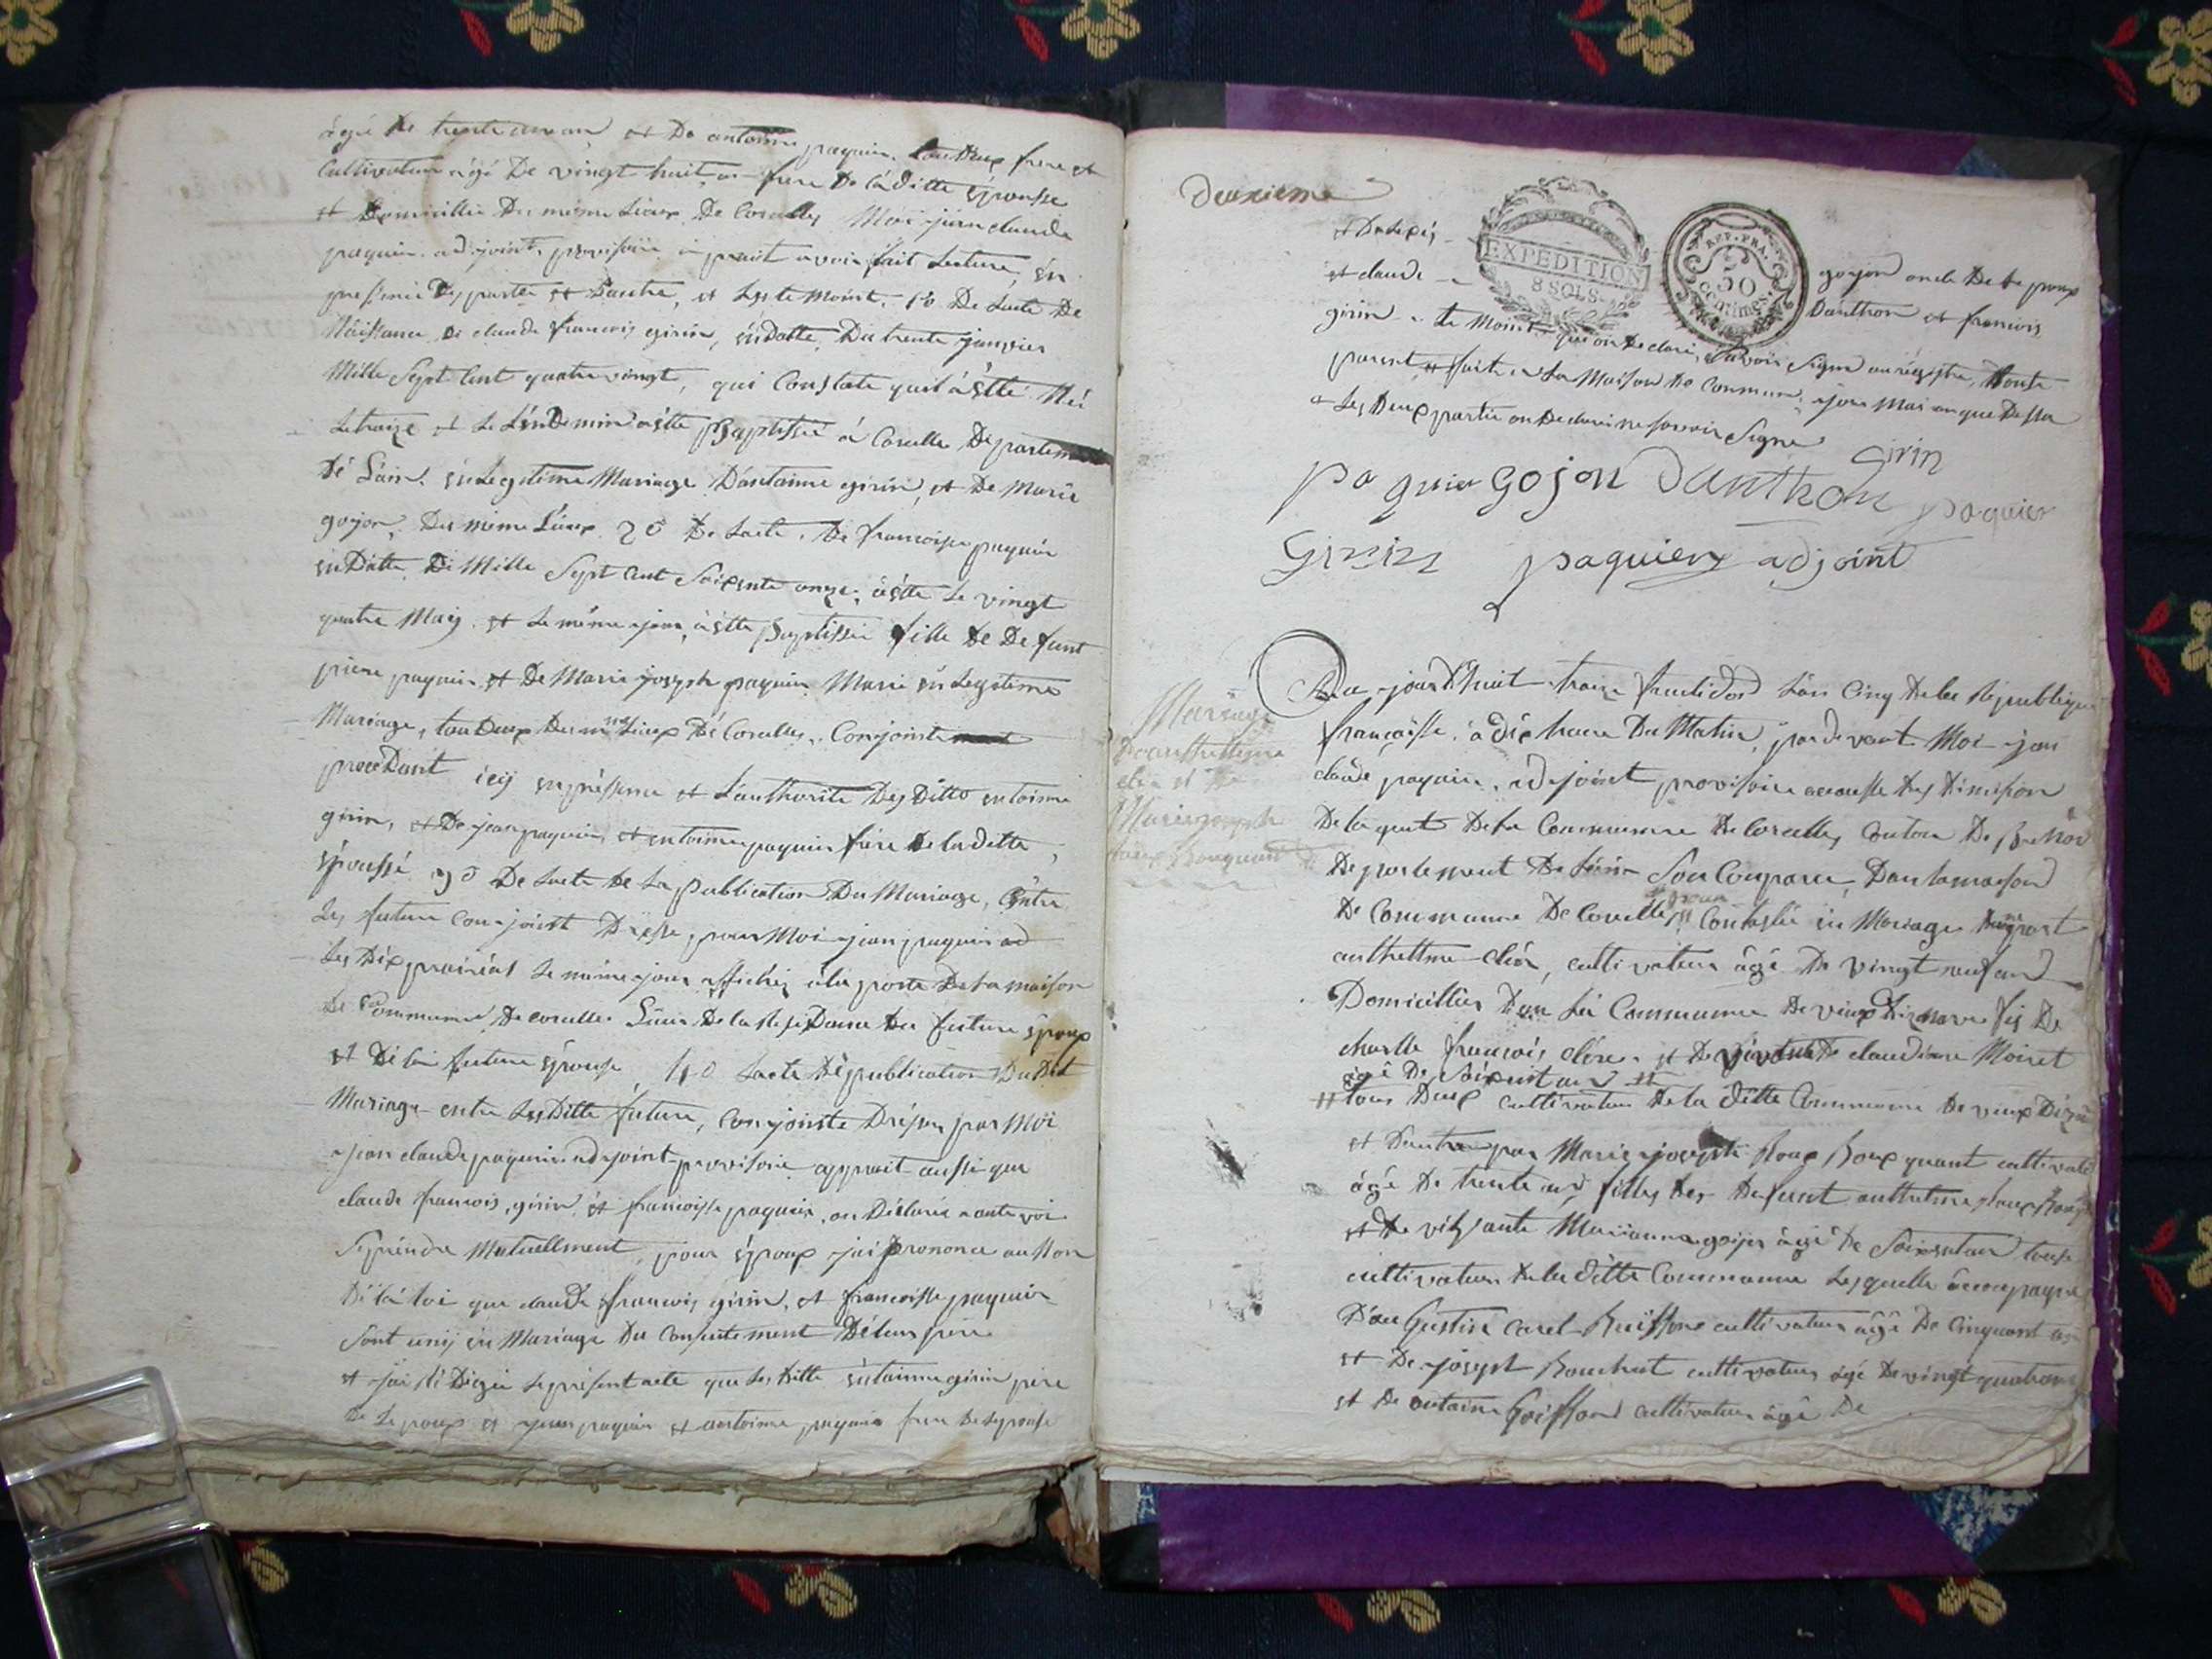 âgé de trente un an et de antoinne paquier tou deux frere et
Cultivateur âgé De vingt huit an frere De laditte épousse
et Domicillié Du même Lieux De Corcelles Moi jean claude
paquier adjoint provisoire apprait avoir fait Lecture, én
pressence Des partie et Dautre, et Les temoint. 1º De Lacte De
Naissance De claude francois girin, én Datte, Du trente janvier
Mille Sept Cent quatre vingt, qui Constate quil à étté Néé
Le traize et Le Léndemin à étté Baptissé à Corcelle Departement
Dé Láin. én Legetime Mariage D'antoinne girin, et De Marie
gojon, Du même Lieux 2º De Lacte, De francoisse paquier
én Datte Di Mille Sept Cent Soixente onze, à étté Le vingt
quatre Maij et Le même jour, à étté Baptissée fille De De funt
piere paquier et De Marie joseph paquier Marié én Legetime
Mariage, tou Deux Du même Lieux Dé Corcelles, Conjoint
procedant icij en préssence et L'authorité Des Ditto entoinne
girin, et De jean paquier, et entoinne paquier frére De laditte
épousse 3º De Lacte De La publication Du Mariage, éntre
Les future conjoint Dresse, pour Moi jean paquier ad
Les Dix prairéal Le même jour affichéz à la porte De La maison
De Commune De corcelles Lieux De la Residance Du future époux
et De lai future épousse 4º Lacte De publication Du Dit
Mariage entre Les Ditte future, conjointe Dréssez par Moi
jean claude paquier adjoint provisoire apprait aussi que
claude francois, girin, et francoisse paquier, on Déclaré a aute voi
Se prendre Mutuellment pour époux jai prononcé au Nom
Dé lá loi que claude francois girin, et francoisse paquier
Sont unij én Mariage Du Consentement Dé leur pére
et jai Rédigéé Le présent acte que Les Ditte éntoinne girin pére
De Lepoux et jean paquier et antoinne paquier frere De Lepousse
Deuxieme
EXPEDITION
8 SOLS
REP. FRA.
50
centimes
gojon oncle De Lepoux
et claude
Dánthon et francois
girin temoint qui on declaré Savoir Signé au régistre, Toute
parent fait en La Maison De Commune, jour Mai an que Dessu
Les Deux partie on Declaré ne Savoir Signé
paquier gojon Danthon Girin paquier
Girin paquier adjoint
Mariage
Danthellme
cléa et De
Marie joseph
Roux Bouquant
Au jourd'huit traize fructidor Lán Cinq de la République
francaisse, à dix heure Du Matin, pardevant Moi jan
claude paquier, adejoint provisoire acausse Des Dimission
De lagent De La Commune De Corcelles Conton De Brénod
Departement De Láin Son Comparu, Dan la maison
De Commune De Corcelle, pour Contracté én Mariage Dune part
anthellme cléa, cultivateur âgé De vingt neuf an
Domicillier Dan La Commune De vieux Dizenave fis De
charlle francois cléa et De vivante claudinne Moiret
âgé De Soixent an et
tous Deux cultivateur De la Ditte Commune De vieux Dize
et D'autre par Marie joseph Roux Bouxquant cultivat
âgé De trente an, filles Des Defunt anthelme Roux
et De vivante Marianne gojon âgé De Soixentan tousse
cultivateur De la Ditte Commune Lesquelle âcompagné
D'au Gustin Carel Ruiffone cultivateur âgé De Cinquant an
et De joseph Bouchut cultivateur âgé De vingt quatre an
et De antoinne Goiffon cultivateur âgé De